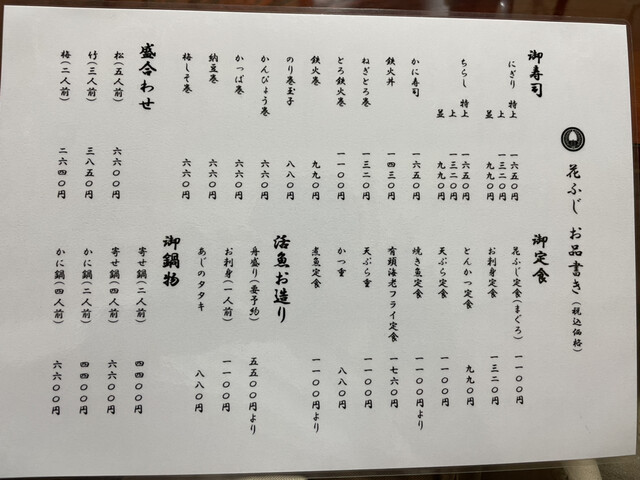 花ふじ お品書き (税込価格)
御寿司
にぎり 特上 一六五〇円
上 一三二〇円
並 九九〇円
ちらし 特上 一六五〇円
上 一三二〇円
並 九九〇円
かに寿司 一六五〇円
鉄火丼 一四三〇円
ねぎとろ巻 一三二〇円
とろ鉄火巻 一一〇〇円
鉄火巻 九九〇円
のり巻玉子 八八〇円
かんぴょう巻 六六〇円
かっぱ巻 六六〇円
納豆巻 六六〇円
梅しそ巻 六六〇円
盛合わせ
松(五人前) 六六〇〇円
竹(三人前) 三八五〇円
梅(二人前) 二六四〇円
御定食
花ふじ定食(まぐろ) 一一〇〇円
お刺身定食 一三二〇円
とんかつ定食 九九〇円
天ぷら定食 一一〇〇円
焼き魚定食 一一〇〇円より
有頭海老フライ定食 一七六〇円
天ぷら重 一一〇〇円
かつ重 八八〇円
煮魚定食 一一〇〇円より
活魚お造り
舟盛り(要予約) 五五〇〇円より
お刺身(一人前) 一一〇〇円
あじのタタキ 八八〇円
御鍋物
寄せ鍋(二人前) 四四〇〇円
寄せ鍋(四人前) 六六〇〇円
かに鍋(二人前) 四四〇〇円
かに鍋(四人前) 六六〇〇円